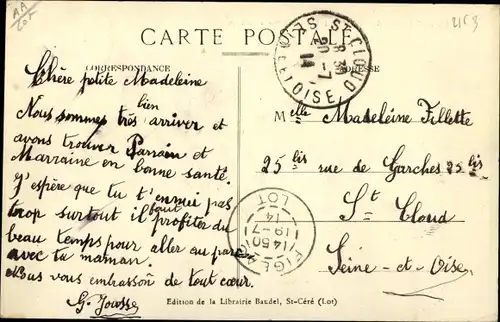 AA
Lot
2153
CARTE POSTALE
CORRESPONDANCE
ADRESSE
Chère petite Madeleine
Nous sommes très bien arriver et
avons trouver Parrain et
Marraine en bonne santé.
J'espère que tu t'ennui pas
trop surtout il faut profiter du
beau temps pour aller au parc
avec ta maman.
Nous vous embrasson de tout cœur.
G. Jousse
Melle Madeleine Fillette
25 bis rue de Garches 25 bis
St Cloud
Seine-et-Oise
ST-CLOUD
8 30
20-7
14
SNE ET OISE
FIGEAC
14 50
19-7
14
LOT
Edition de la Librairie Baudel, St-Céré (Lot)